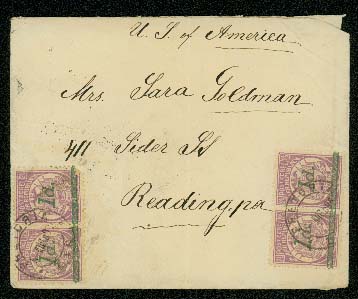 U. S. of America
Mrs. Sara Goldman
411 Sider St
Reading, pa
1d.
1d.
1d.
1d.